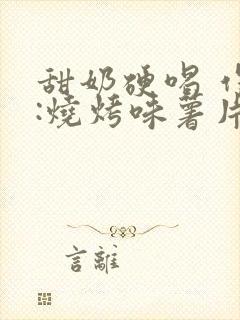 甜奶硬唱
:燒烤味薯片
言離